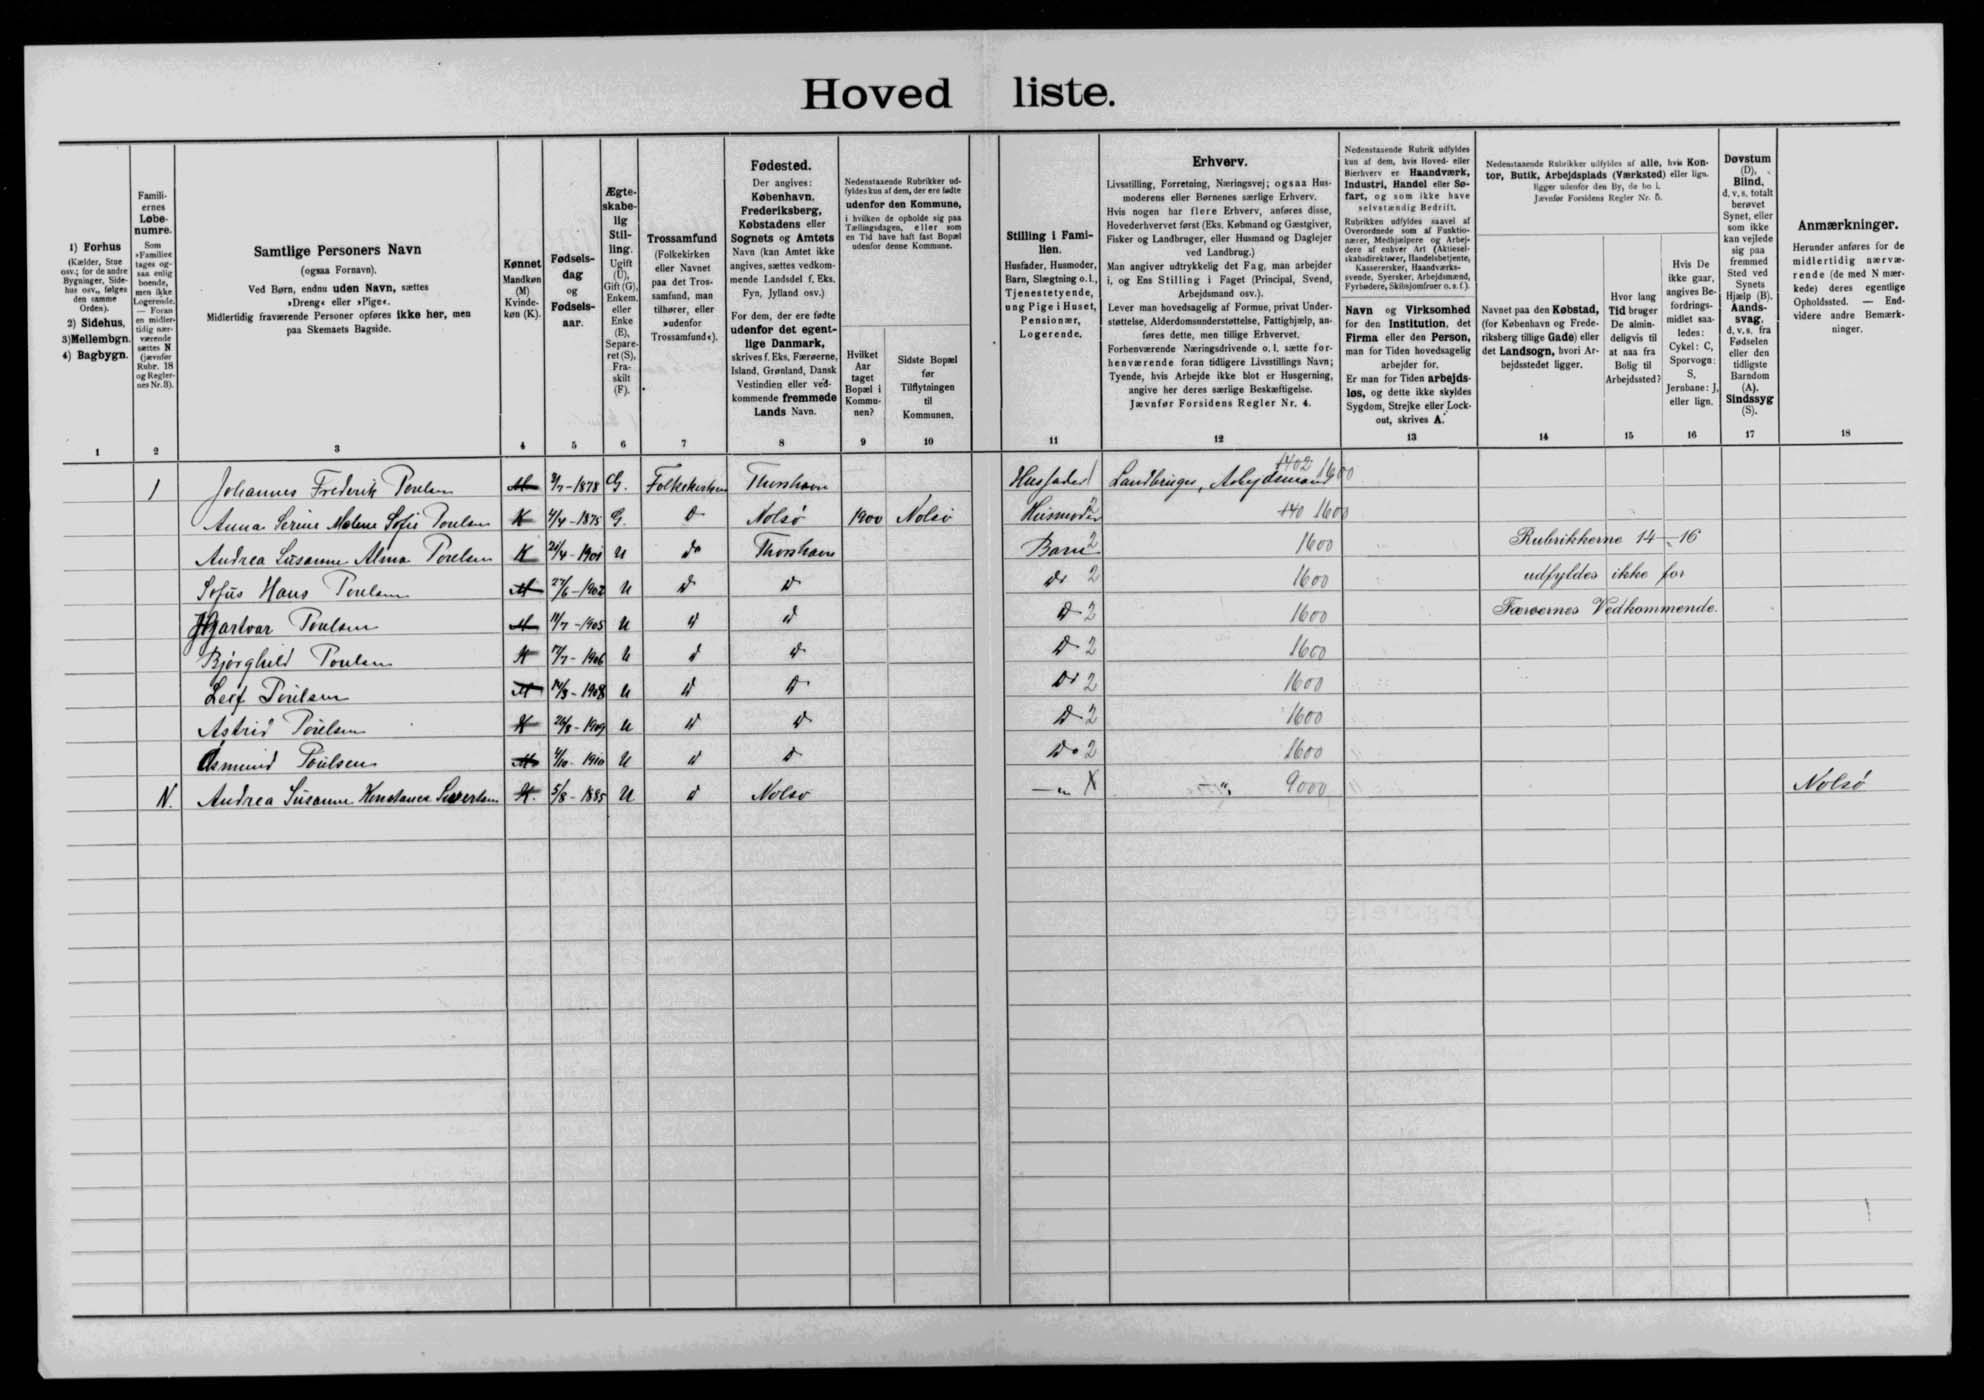 Hovedliste.
1) Forhus
(Kælder, Stue
osv.; for de andre
Bygninger, Side-
hus osv., følges
den samme
Orden).
2) Sidehus,
3) Mellembgn.
4) Bagbygn.
1
Famili-
ernes
Løbe-
numre.
Som
»Familie«
tages og-
saa enlig
boende,
men ikke
Logerende.
— Foran
en midler-
tidig nær-
værende
sættes N
(jævnfør
Rubr. 18
og Regler-
nes Nr. 3).
2
Samtlige Personers Navn
(ogsaa Fornavn).
Ved Børn, endnu uden Navn, sættes
»Dreng« eller »Pige«.
Midlertidig fraværende Personer opføres ikke her, men
paa Skemaets Bagside.
3
Kønnet
Mandkøn
(M)
Kvinde-
køn (K).
4
Fødsels-
dag
og
Fødsels-
aar.
5
Ægte-
skabe-
lig
Stil-
ling.
Ugift
(U),
Gift (G),
Enkem.
eller
Enke
(E),
Separe-
ret (S),
Fra-
skilt
(F).
6
Trossamfund
(Folkekirken
eller Navnet
paa det Tros-
samfund, man
tilhører, eller
»udenfor
Trossamfund«).
7
Fødested.
Der angives:
København,
Frederiksberg,
Købstadens eller
Sognets og Amtets
Navn (kan Amtet ikke
angives, sættes vedkom-
mende Landsdel f. Eks.
Fyn, Jylland osv.)
For dem, der ere fødte
udenfor det egent-
lige Danmark,
skrives f. Eks. Færøerne,
Island, Grønland, Dansk
Vestindien eller ved-
kommende fremmede
Lands Navn.
8
Nedenstaaende Rubrikker ud-
fyldes kun af dem, der ere fødte
udenfor den Kommune,
i hvilken de opholde sig paa
Tællingsdagen, eller som
en Tid have haft fast Bopæl
udenfor denne Kommune.
Hvilket
Aar
taget
Bopæl i
Kommu-
nen?
9
Sidste Bopæl
før
Tilflytningen
til
Kommunen.
10
Stilling i Fami-
lien.
Husfader, Husmoder,
Barn, Slægtning o. l.,
Tjenestetyende,
ung Pige i Huset,
Pensionær,
Logerende.
11
Erhverv.
Livsstilling, Forretning, Næringsvej; ogsaa Hus-
moderens eller Børnenes særlige Erhverv.
Hvis nogen har flere Erhverv, anføres disse,
Hovederhvervet først (Eks. Købmand og Gæstgiver,
Fisker og Landbruger, eller Husmand og Daglejer
ved Landbrug.)
Man angiver udtrykkelig det Fag, man arbejder
i, og Ens Stilling i Faget (Principal, Svend,
Arbejdsmand osv.).
Lever man hovedsagelig af Formue, privat Under-
støttelse, Alderdomsunderstøttelse, Fattighjælp, an-
føres dette, men tillige Erhvervet.
Forhenværende Næringsdrivende o. l. sætte for-
henværende foran tidligere Livsstillings Navn;
Tyende, hvis Arbejde ikke blot er Husgerning,
angive her deres særlige Beskæftigelse.
Jævnfør Forsidens Regler Nr. 4.
12
Nedenstaaende Rubrik udfyldes
kun af dem, hvis Hoved- eller
Bierhverv er Haandværk,
Industri, Handel eller Sø-
fart, og som ikke have
selvstændig Bedrift.
Rubrikken udfyldes saavel af
Overordnede som af Funktio-
nærer, Medhjælpere og Arbej-
dere af enhver Art (Aktiesel-
skabsdirektører, Handelsbetjente,
Kasserersker, Haandværks-
svende, Syersker, Arbejdsmænd,
Fyrbødere, Skibsjomfruer o. s. f.).
Navn og Virksomhed
for den Institution, det
Firma eller den Person,
man for Tiden hovedsagelig
arbejder for.
Er man for Tiden arbejds-
løs, og dette ikke skyldes
Sygdom, Strejke eller Lock-
out, skrives A.
13
Nedenstaaende Rubrikker udfyldes af alle, hvis Kon-
tor, Butik, Arbejdsplads (Værksted) eller lign.
ligger udenfor den By, de bo i.
Jævnfør Forsidens Regler Nr. 5.
Navnet paa den Købstad,
(for København og Frede-
riksberg tillige Gade) eller
det Landsogn, hvori Ar-
bejdsstedet ligger.
14
Hvor lang
Tid bruger
De almin-
deligvis til
at naa fra
Bolig til
Arbejdssted?
15
Hvis De
ikke gaar,
angives Be-
fordrings-
midlet saa-
ledes:
Cykel: C,
Sporvogn:
S,
Jernbane: J,
eller lign.
16
Døvstum
(D),
Blind,
d. v. s. totalt
berøvet
Synet, eller
som ikke
kan vejlede
sig paa
fremmed
Sted ved
Synets
Hjælp (B).
Aands-
svag,
d. v. s. fra
Fødselen
eller den
tidligste
Barndom
(A).
Sindssyg
(S).
17
Anmærkninger.
Herunder anføres for de
midlertidig nærvæ-
rende (de med N mær-
kede) deres egentlige
Opholdssted. — End-
videre andre Bemærk-
ninger.
18
1 Johannes Frederik Poulsen M 3/7-1878 G. Folkekirken Thorshavn Husfader 1 Landbruger, Arbejdsmand 1402 1600
Anna Serine Malene Sofie Poulsen K 4/4-1875 G. Do Nolsö 1900 Nolsö Husmoder 2 140 1600
Andrea Susanne Alma Poulsen K 21/4-1901 U do Thorshavn Barn 2 1600 Rubrikkerne 14-16
Sofus Hans Poulsen M 27/6-1902 U do do do 2 1600 udfyldes ikke for
Hjartvar Poulsen M 11/7-1905 U do do do 2 1600 Færøernes Vedkommende.
Bjørghild Poulsen K 17/7-1906 U do do do 2 1600
Leif Poulsen M 14/3-1908 U do do do 2 1600
Astrid Poulsen K 26/8-1909 U do do do 2 1600
Osmund Poulsen M 4/10-1910 U do do do 2 1600
N. Andrea Susanne K. 5/8-1885 U do Nolsö —„ X —„ 9000 Nolsö